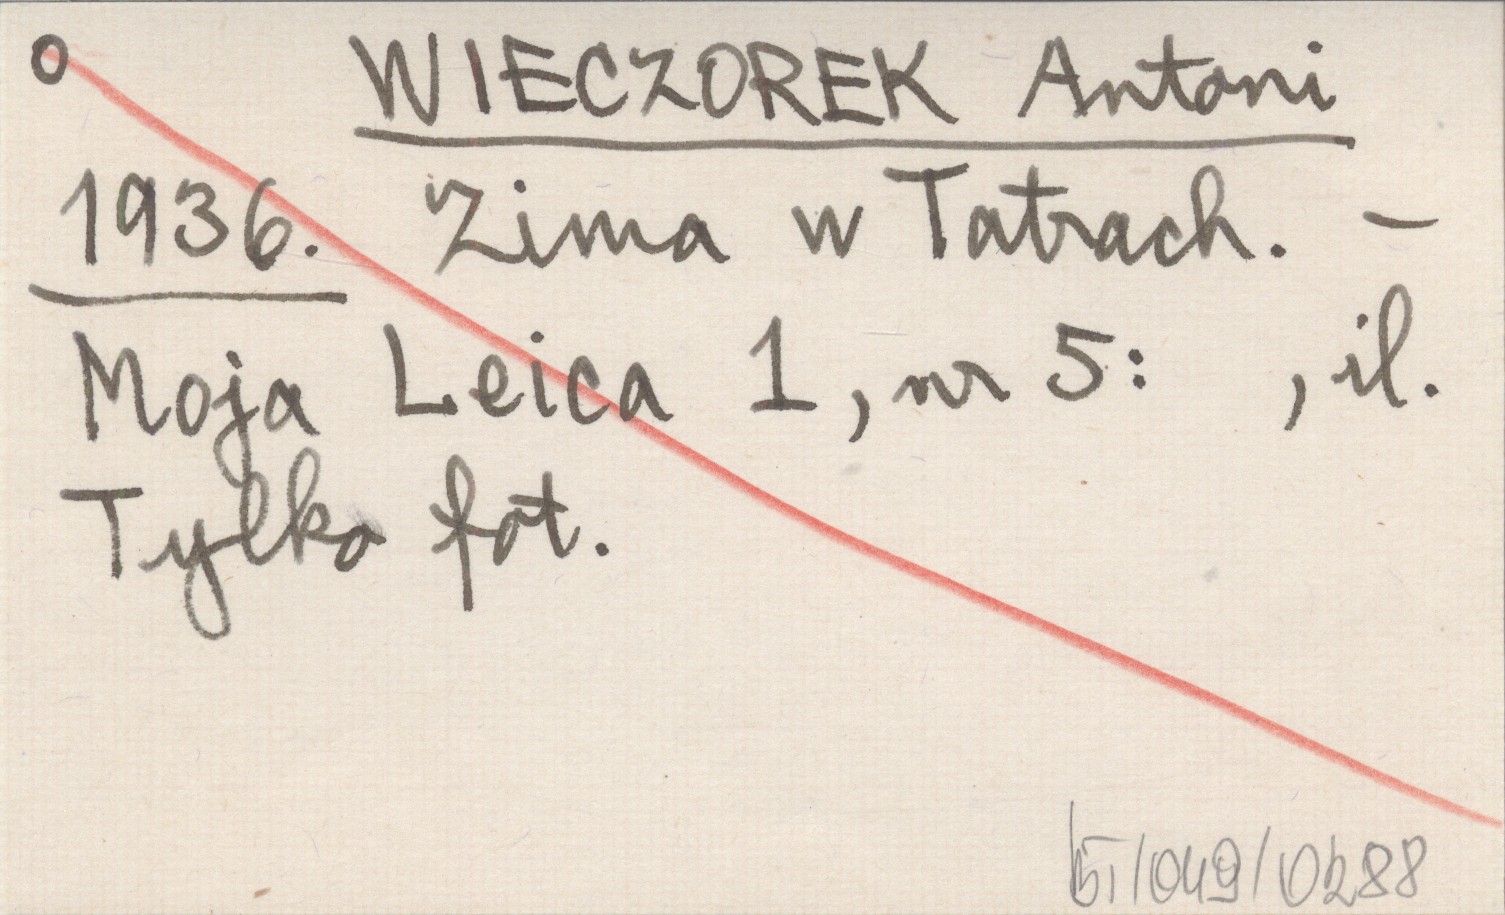 o WIECZOREK Antoni
1936. Zima w Tatrach. –
Moja Leica 1, nr 5: , il.
Tylko fot.
/049/0288